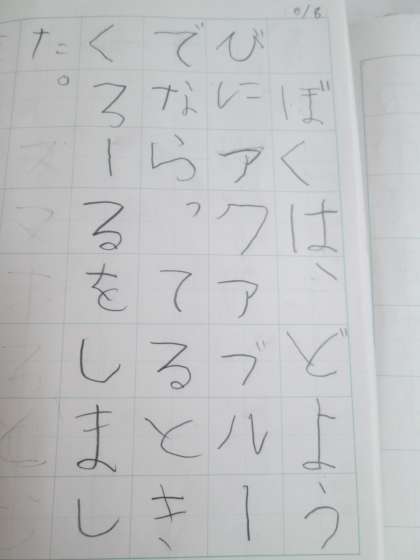 ぼくは、どよう
びにアクアブルー
でならってるとき、
くろーるをしまし
た。